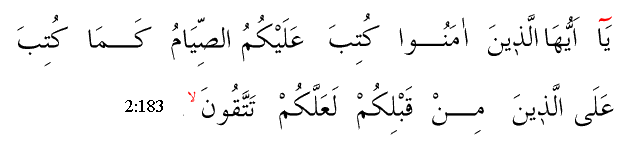 يَٓا اَيُّهَا الَّذ۪ينَ اٰمَنُـــوا كُتِبَ عَلَيْكُمُ الصِّيَامُ كَـــمَا كُتِبَ
عَلَى الَّذ۪ينَ مِـــنْ قَبْلِكُمْ لَعَلَّكُمْ تَتَّقُونَۙ 2:183